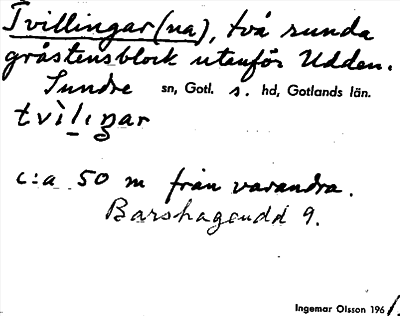 Tvillingar(na), två runda
gråstensblock utanför Udden.
Sundre sn, Gotl. s. hd, Gotlands län.
tvìlıŋar
c:a 50 m från varandra.
Barshageudd 9.
Ingemar Olsson 1961.